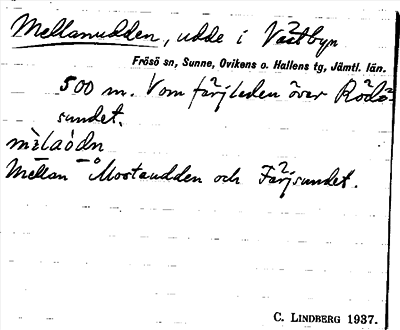 Mellanudden, udde i Västbyn
Frösö sn, Sunne, Ovikens o. Hallens tg, Jämtl. län.
500 m. V om färjleden över Rödö-
sundet.
mèlaòdn
Mellan Mostaudden och Färjsundet.
C. LINDBERG 1937.